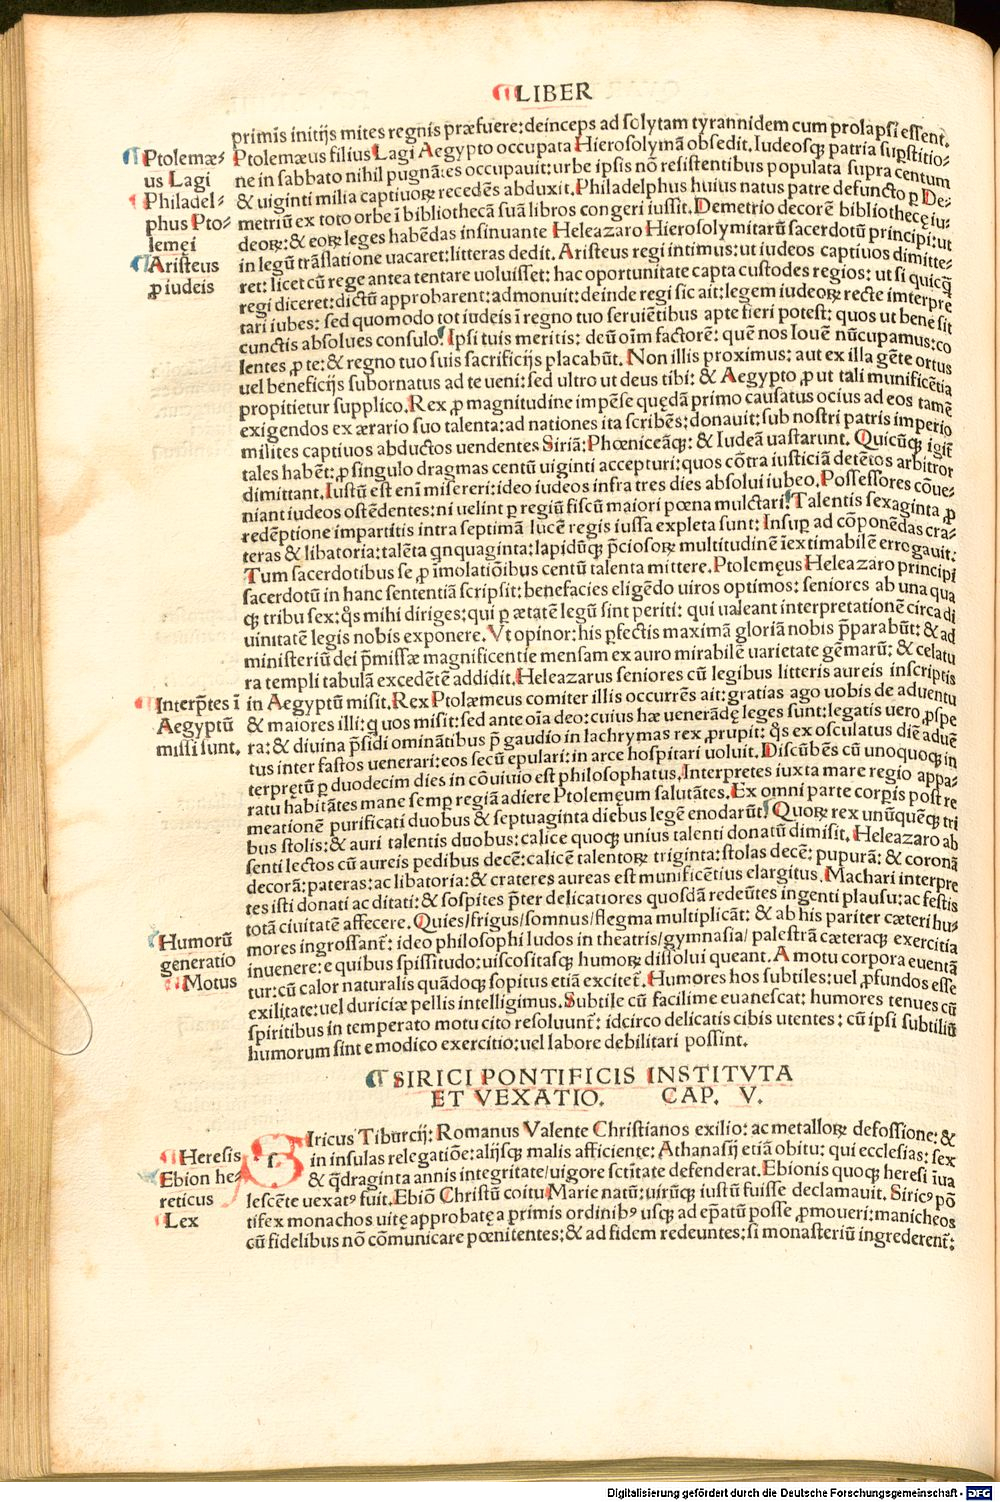 LIBER
primis initijs mites regnis præfuere: deinceps ad solytam tyrannidem cum prolapsi essent.
Ptolemæus filius Lagi Aegypto occupata Hierosolymā obsedit. Iudeosq; patria sup̄stitio-
ne in sabbato nihil pugnātes occupauit: urbe ipsis nō resistentibus populata supra centum
& uiginti milia captiuoꝝ recedēs abduxit. Philadelphus huius natus patre defuncto ꝑ De-
metriū ex toto orbe ī bibliothecā suā libros congeri iussit. Demetrio decorē bibliothecę iu-
deoꝝ: & eoꝝ leges habēdas insinuante Heleazaro Hierosolymitarū sacerdotū principi: ut
in legū trāslatione uacaret: litteras dedit. Aristeus regi intimus: ut iudeos captiuos dimitte-
ret: licet cū rege antea tentare uoluisset: hac oportunitate capta custodes regios: ut si quicq̄
regi diceret: dictū approbarent: admonuit: deinde regi sic ait: legem iudeoꝝ recte imterpre
tari iubes: sed quomodo tot iudeis ī regno tuo seruiētibus apte fieri potest: quos ut bene sit
cunctis absolues consulo. Ipsi tuis meritis: deū oīm factorē: quē nos Iouē nūcupamus: co
lentes ꝓ te: & regno tuo suis sacrificijs placabūt. Non illis proximus: aut ex illa gēte ortus
uel beneficijs subornatus ad te ueni: sed ultro ut deus tibi: & Aegypto ꝓ ut tali munificētia
propitietur supplico. Rex ꝓ magnitudine impēse quędā primo causatus ocius ad eos tamē
exigendos ex ærario suo talenta: ad nationes ita scribēs: donauit: sub nostri patris imperio
milites captiuos abductos uendentes Siriā: Phœniceāq;: & Iudeā uastarunt. Quicūq; igit̄
tales habēt: ꝓ singulo dragmas centū uiginti accepturi: quos cōtra iusticiā detētos arbitror
dimittant. Iustū est enī misereri: ideo iudeos infra tres dies absolui iubeo. Possessores cōue-
niant iudeos ostēdentes: ni uelint ꝑ regiū fiscū maiori pœna mulctari. Talentis sexaginta ꝓ
redēptione impartitis intra septimā lucē regis iussa expleta sunt: Insuꝑ ad cōponēdas cra-
teras & libatoria: talēta qnquaginta: lapidūq; p̄ciosoꝝ multitudinē īextimabilē errogauit:
Tum sacerdotibus se ꝓ īmolatiōibus centū talenta mittere. Ptolemęus Heleazaro principi
sacerdotū in hanc sententiā scripsit: benefacies eligēdo uiros optimos: seniores ab una qua
q; tribu sex: q̄s mihi diriges: qui ꝑ ætatē legū sint periti: qui ualeant interpretationē circa di
uinitatē legis nobis exponere. Vt opinor: his ꝑfectis maximā gloriā nobis p̄parabūt: & ad
ministeriū dei p̄missæ magnificentie mensam ex auro mirabilē uarietate gēmarū: & celatu
ra templi tabulā excedētē addidit. Heleazarus seniores cū legibus litteris aureis inscriptis
in Aegyptū misit. Rex Ptolæmeus comiter illis occurrēs ait: gratias ago uobis de aduentu
& maiores illi: q uos misit: sed ante oīa deo: cuius hæ uenerādę leges sunt: legatis uero ꝓspe
ra: & diuina p̄sidi ominātibus p̄ gaudio in lachrymas rex ꝓrupit: q̄s ex osculatus diē aduē
tus inter fastos uenerari: eos secū epulari: in arce hospitari uoluit. Discūbēs cū unoquoq; in
terpretū ꝑ duodecim dies in cōuiuio est philosophatus. Interpretes iuxta mare regio appa-
ratu habitātes mane semꝑ regiā adiere Ptolemęum salutātes. Ex omni parte corꝑis post re
meationē purificati duobus & septuaginta diebus legē enodarūt. Quoꝝ rex unūquēq; tri
bus stolis: & auri talentis duobus: calice quoq; unius talenti donatū dimisit. Heleazaro ab
senti lectos cū aureis pedibus decē: calicē talentoꝝ triginta: stolas decē: pupurā: & coronā
decorā: pateras: ac libatoria: & crateres aureas est munificētius elargitus. Machari interpre
tes isti donati ac ditati: & sospites p̄ter delicatiores quosdā redeūtes ingenti plausu: ac festis
totā ciuitatē affecere. Quies/frigus/somnus/flegma multiplicāt: & ab his pariter cæteri hu-
mores ingrossant̄: ideo philosophi ludos in theatris/gymnasia/ palestrā cæteraq; exercitia
inuenere: e quibus spissitudo: uiscositasq; humoꝝ dissolui queant. A motu corpora euentā
tur: cū calor naturalis quādoq; sopitus etiā excitet̄. Humores hos subtiles: uel ꝓfundos esse
exilitate: uel duriciæ pellis intelligimus. Subtile cū facilime euanescat: humores tenues cū
spiritibus in temperato motu cito resoluunt̄: idcirco delicatis cibis utentes: cū ipsi subtiliū
humorum sint e modico exercitio: uel labore debilitari possint.
Ptolemæ-
us Lagi
Philadel-
phus Pto-
lemęi
Aristeus
ꝓ iudeis
Interp̄tes ī
Aegyptū
missi sunt.
Humorū
generatio
Motus
SIRICI PONTIFICIS INSTITVTA
ET VEXATIO. CAP. V.
SIricus Tiburcij: Romanus Valente Christianos exilio: ac metalloꝝ defossione: &
in insulas relegatiōe: alijsq; malis afficiente: Athanasij etiā obitu: qui ecclesias: sex
& q̄draginta annis integritate/uigore sctītate defenderat. Ebionis quoq; heresi īua
lescēte uexatꝰ fuit. Ebiō Christū coitu Marie natū: uirūq; iustū fuisse declamauit. Siricꝰ pō
tifex monachos uitę approbatę a primis ordinibꝰ usq; ad ep̄atū posse ꝓmoueri: manicheos
cū fidelibus nō cōmunicare pœnitentes: & ad fidem redeuntes: si monasteriū ingrederent̄:
Heresis
Ebion he-
reticus
Lex
Digitalisierung gefördert durch die Deutsche Forschungsgemeinschaft - DFG